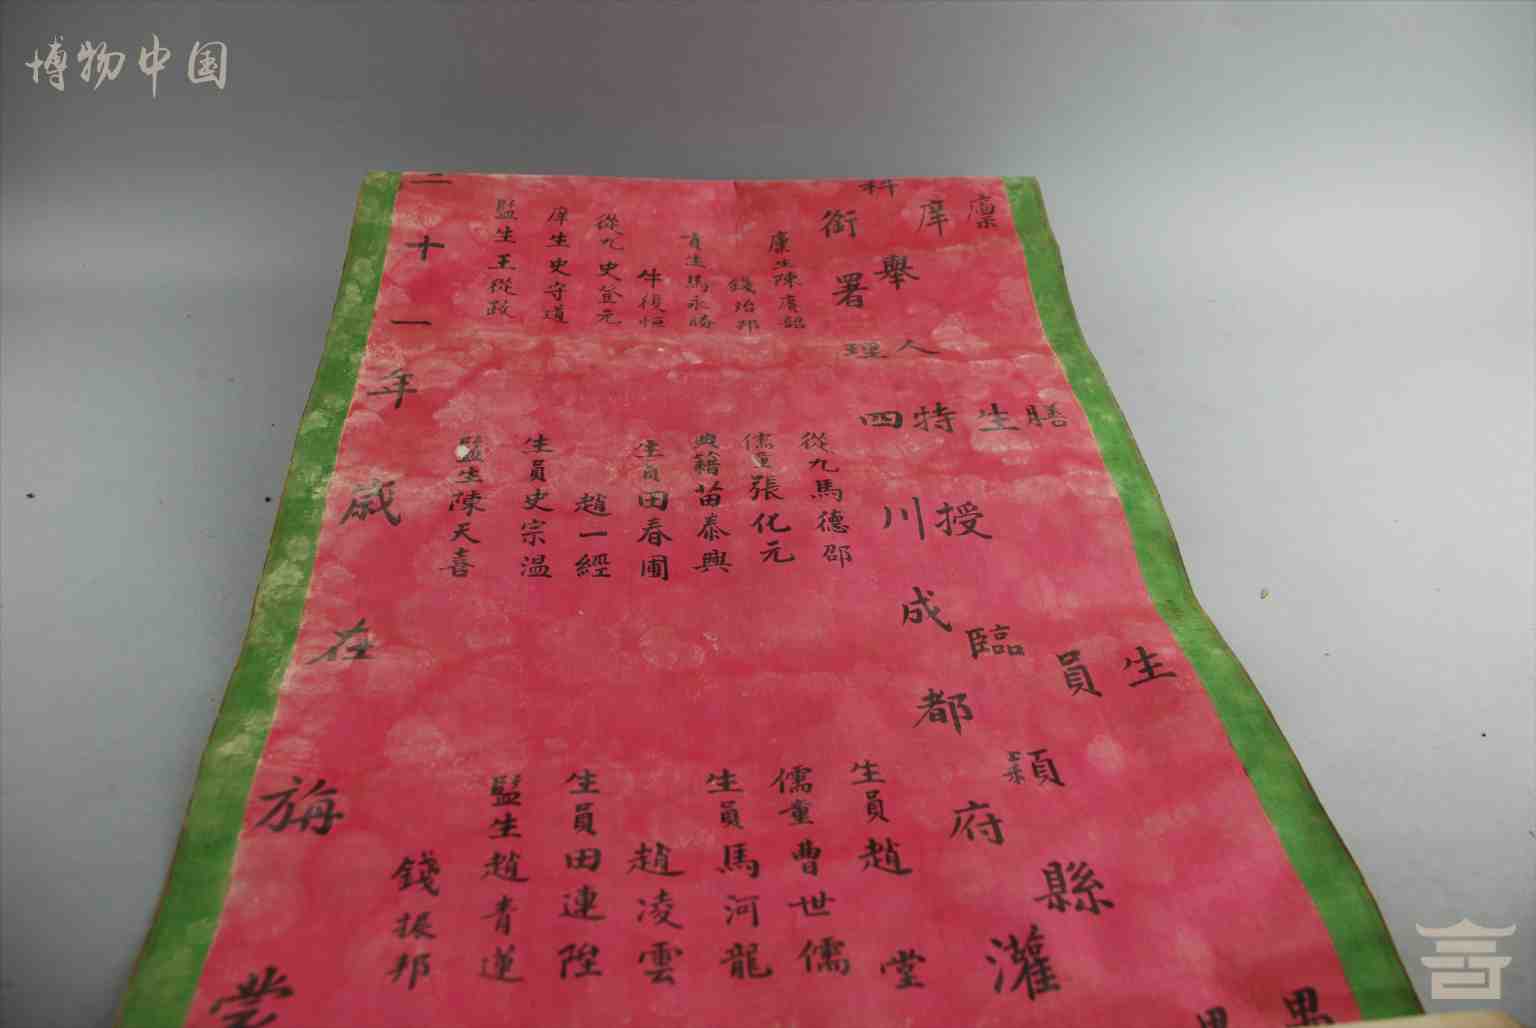 博物中国
廩膳生
庠生員
科舉人特授臨潁縣
銜署理四川成都府灌
廩生陳廣韶
錢治邦
貢生馬永勝
牛復恒
從九史登元
庠生史守道
監生王從政
從九馬德邵
儒童張化元
典籍苗泰興
生員田春圃
趙一經
生員史宗温
監生陳天喜
生員趙堂
儒童曹世儒
生員馬河龍
趙凌雲
生員田連陞
監生趙青蓮
錢振邦
二十一年歲在旃蒙